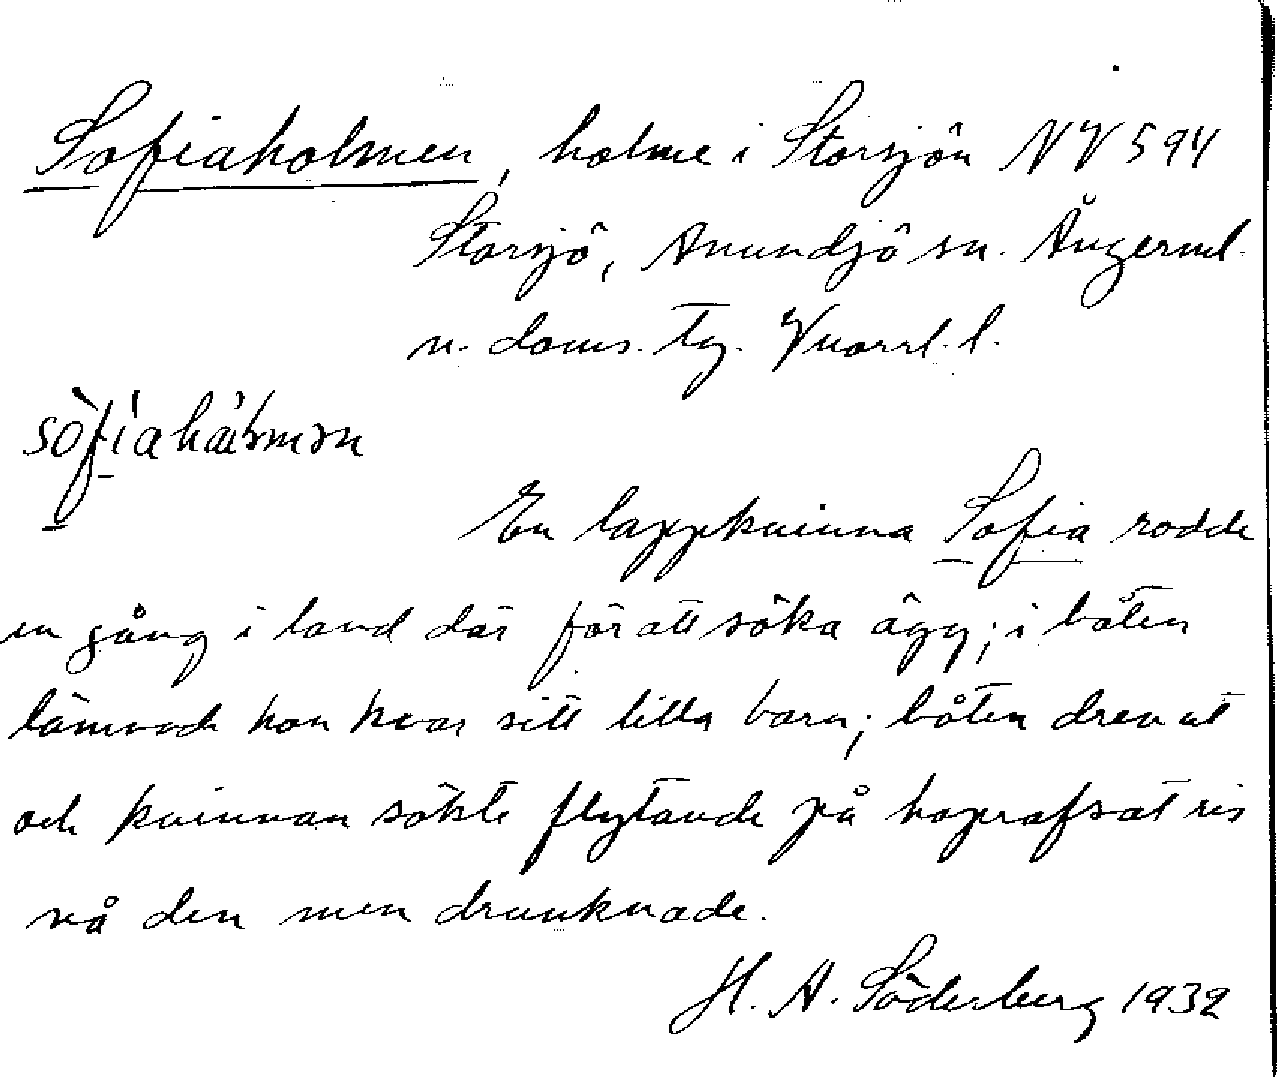 Sofiaholmen, holme i Storsjön NV 594
Storsjö, Anundsjö sn. Ångerml.
n. doms. tg. Vnorrl. l.
En lappkvinna Sofia rodde
en gång i land där för att söka ägg; i båten
lämnade hon kvar sitt lilla barn; båten drev ut
och kvinnan sökte flytande på hoprafsat ris
nå den men drunknade.
H. A. Söderberg 1932